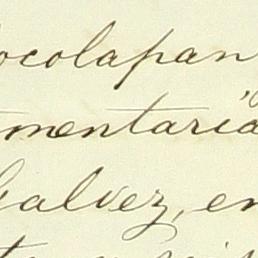 ocolapan
mentaria
Galvez, en